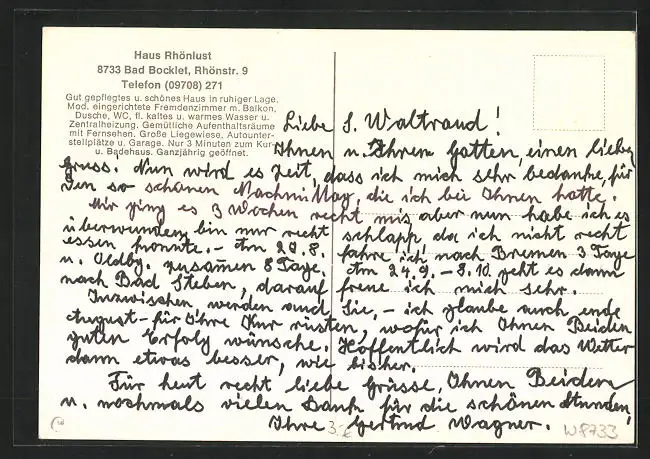 Haus Rhönlust
8733 Bad Bocklet, Rhönstr. 9
Telefon (09708) 271
Gut gepflegtes u. schönes Haus in ruhiger Lage.
Mod. eingerichtete Fremdenzimmer m. Balkon,
Dusche, WC, fl. kaltes u. warmes Wasser u.
Zentralheizung. Gemütliche Aufenthaltsräume
mit Fernsehen. Große Liegewiese, Autounter-
stellplätze u. Garage. Nur 3 Minuten zum Kur-
u. Badehaus. Ganzjährig geöffnet.
Liebe S. Waltraud!
Ihnen u. Ihrem Gatten, einen lieben
Gruss. Nun wird es Zeit, dass ich mich sehr bedanke, für
den so schönen Nachmittag, die ich bei Ihnen hatte.
Mir ging es 3 Wochen recht mis, aber nun habe ich es
überwunden, bin nur recht schlapp, da ich nicht recht
essen konnte. - Am 20.8. fahre ich nach Bremen 3 Tage
u. Oldbg. zusamen 8 Tage. Am 24.9. - 8.10. geht es dann
nach Bad Steben, darauf freue ich mich sehr.
Inzwischen werden auch Sie, - ich glaube auch ende
August - für Ihre Kur rüsten, wofür ich Ihnen Beiden
guten Erfolg wünsche. Hoffentlich wird das Wetter
dann etwas besser, wie bisher.
Für heut recht liebe Grüsse, Ihnen Beiden
u. nochmals vielen Dank für die schönen Stunden,
Ihre Gertrud Wagner.
W8733